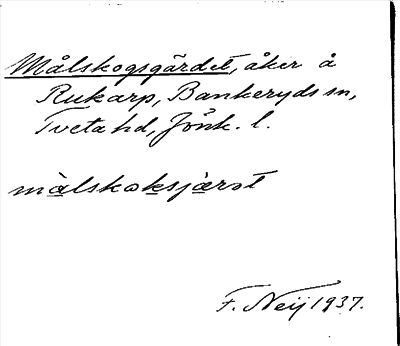 Målskogsgärdet, åker å
Rukarp, Bankeryds sn,
Tveta hd, Jönk. l.
målskoksjærət
F. Neij 1937.